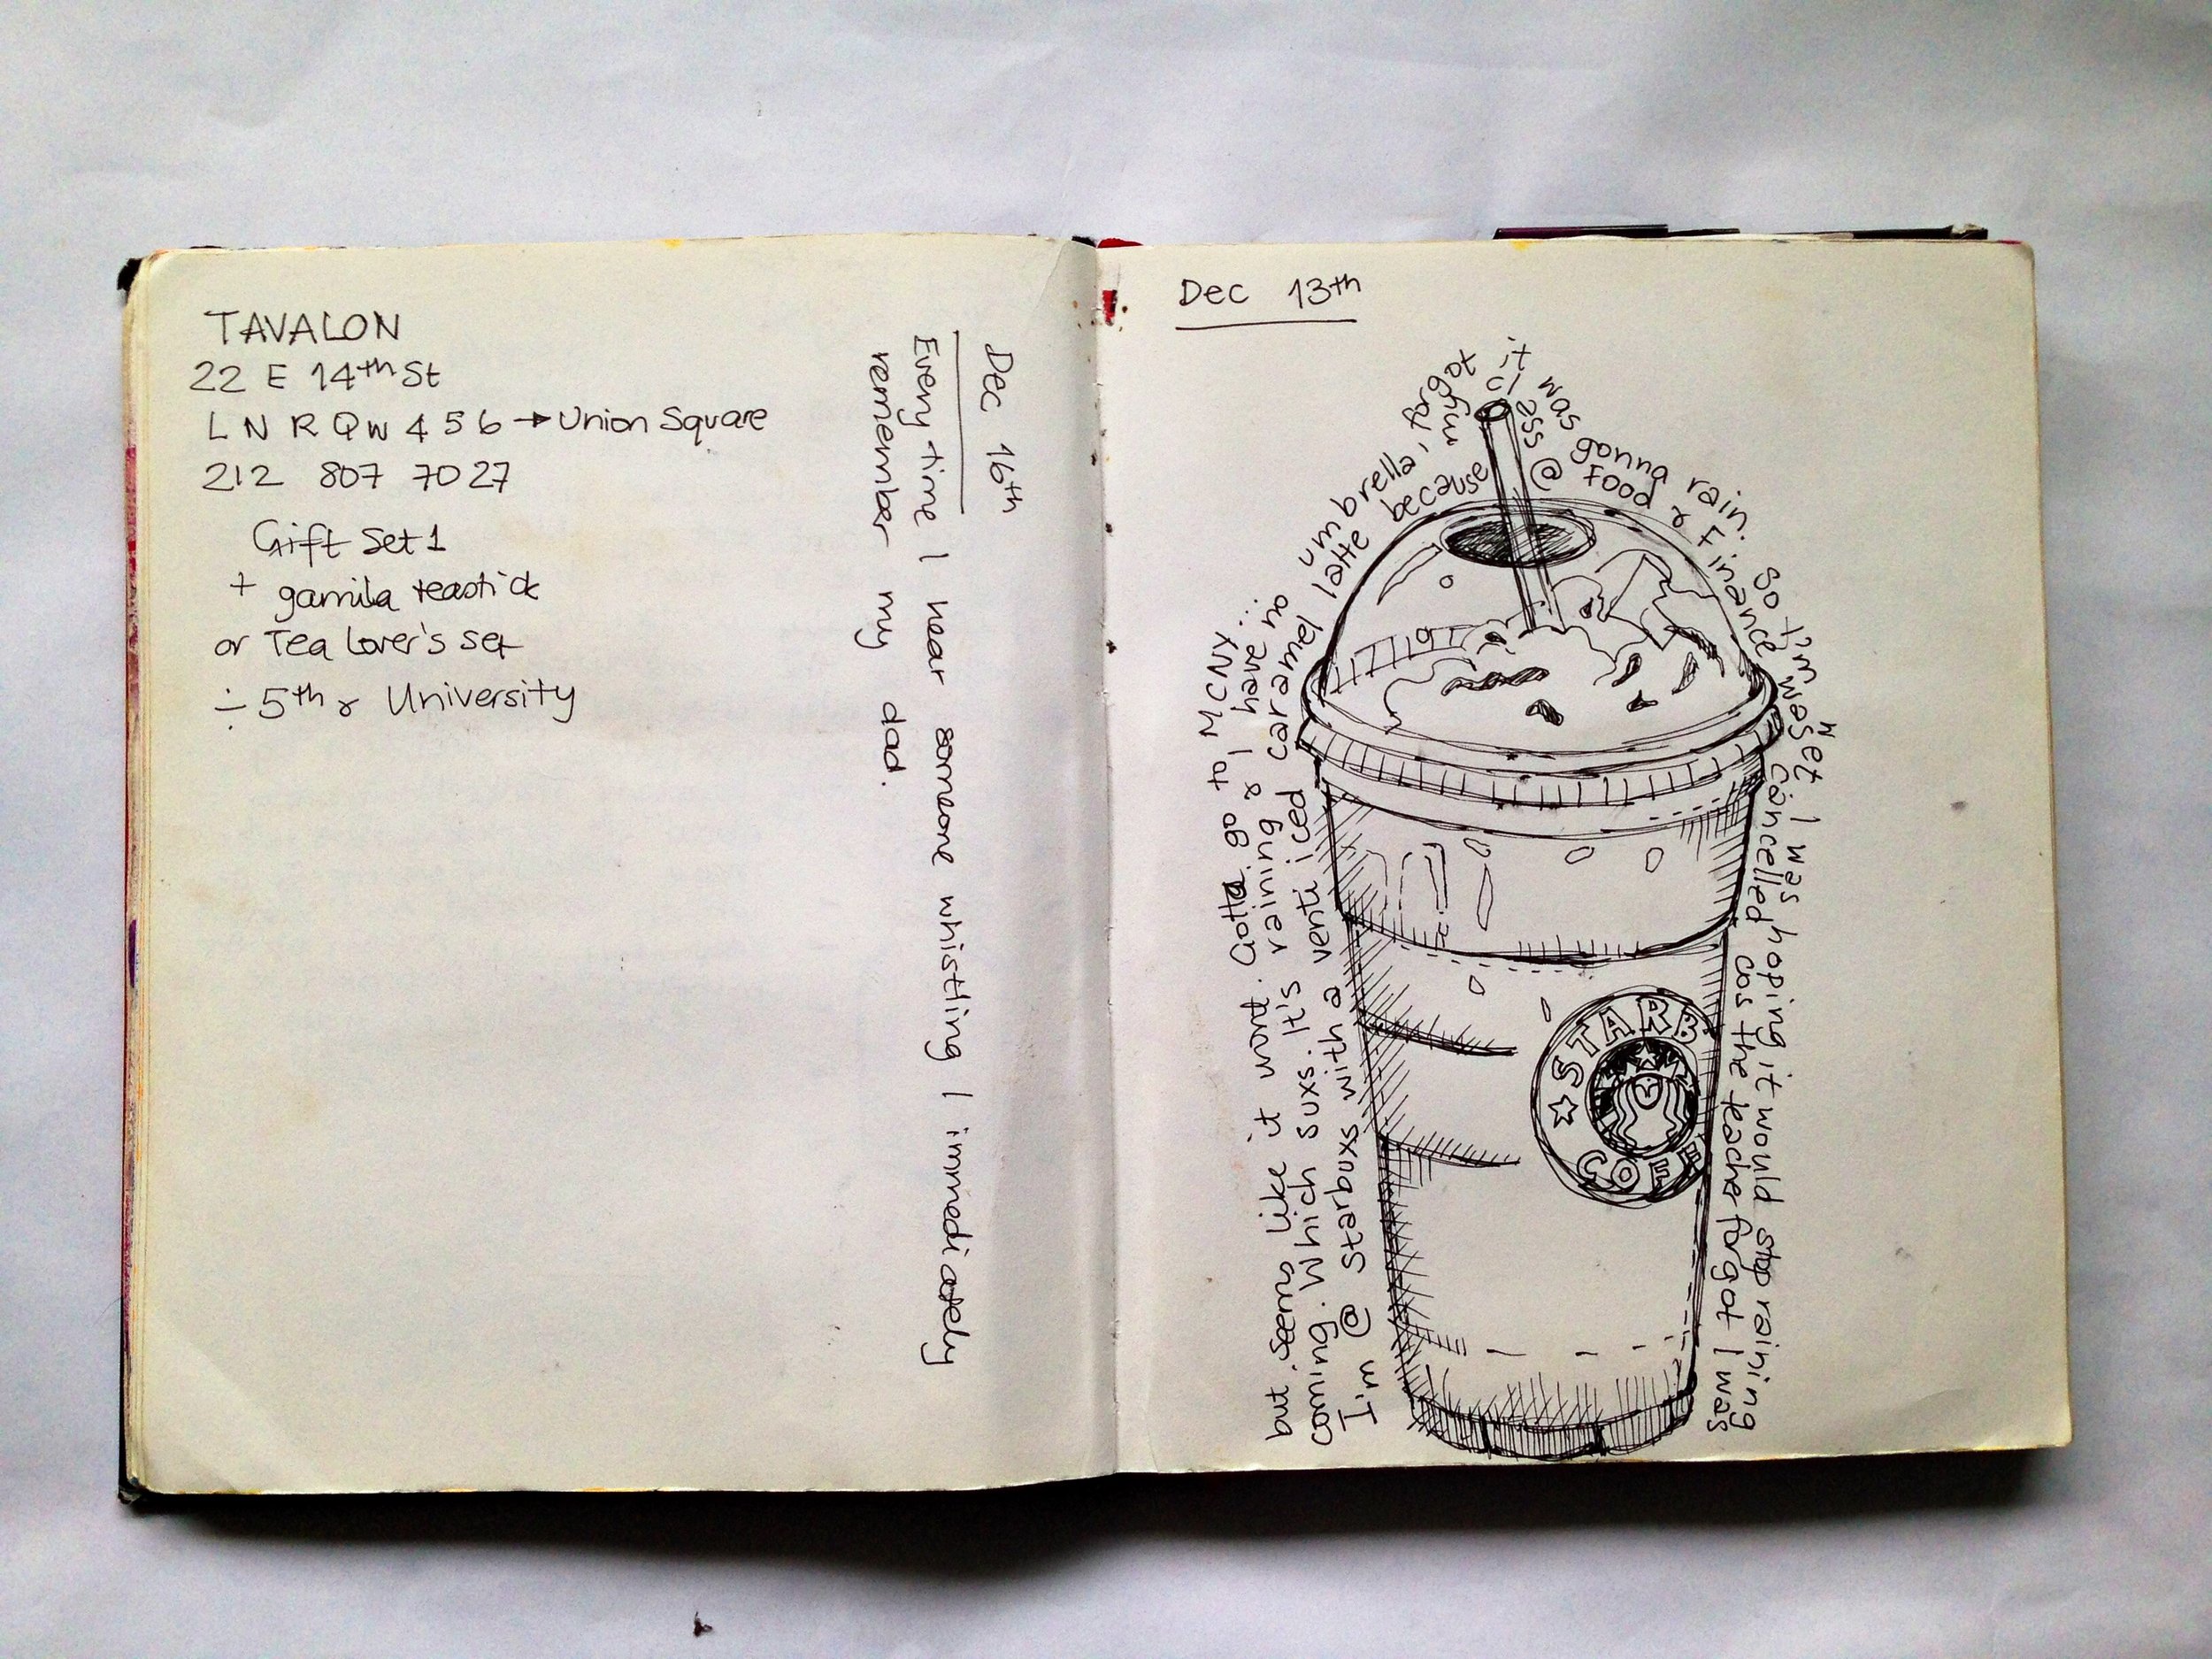 TAVALON
22 E 14th St
L N R Q W 4 5 6 → Union Square
212 807 7027
Gift Set 1
+ gamila teastick
or Tea Lover's Set
÷ 5th & University
Dec 16th
Every time I hear someone whistling I immediately
remember my dad.
Dec 13th
I'm @ Starbuxs with a venti iced caramel latte because my class @ Food & Finance cancelled cos the teacher forgot I was
coming. Which suxs. It's raining & I have no umbrella, forgot it was gonna rain. So I'm wet I was hoping it would stop raining
but seems like it wont. Gotta go to MCNY...
STARB
COFF